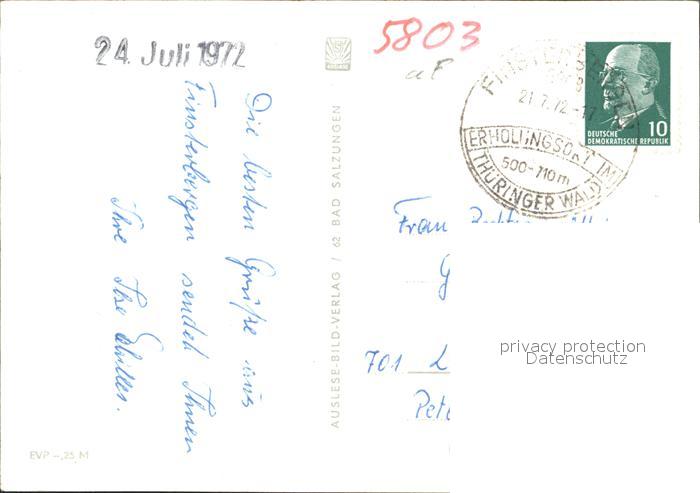 24. Juli 1972
5803
Die besten Grüße aus
Finsterbergen sendet Ihnen
Ihre Ilse
AUSLESE-BILD-VERLAG / 62 BAD SALZUNGEN
EVP -,25 M
FINSTERBERGEN
21.7.72.-17
ERHOLUNGSORT IM
500-710m
THÜRINGER WALD
DEUTSCHE
DEMOKRATISCHE REPUBLIK
10
Frau
G
701 L
Pet
privacy protection
Datenschutz